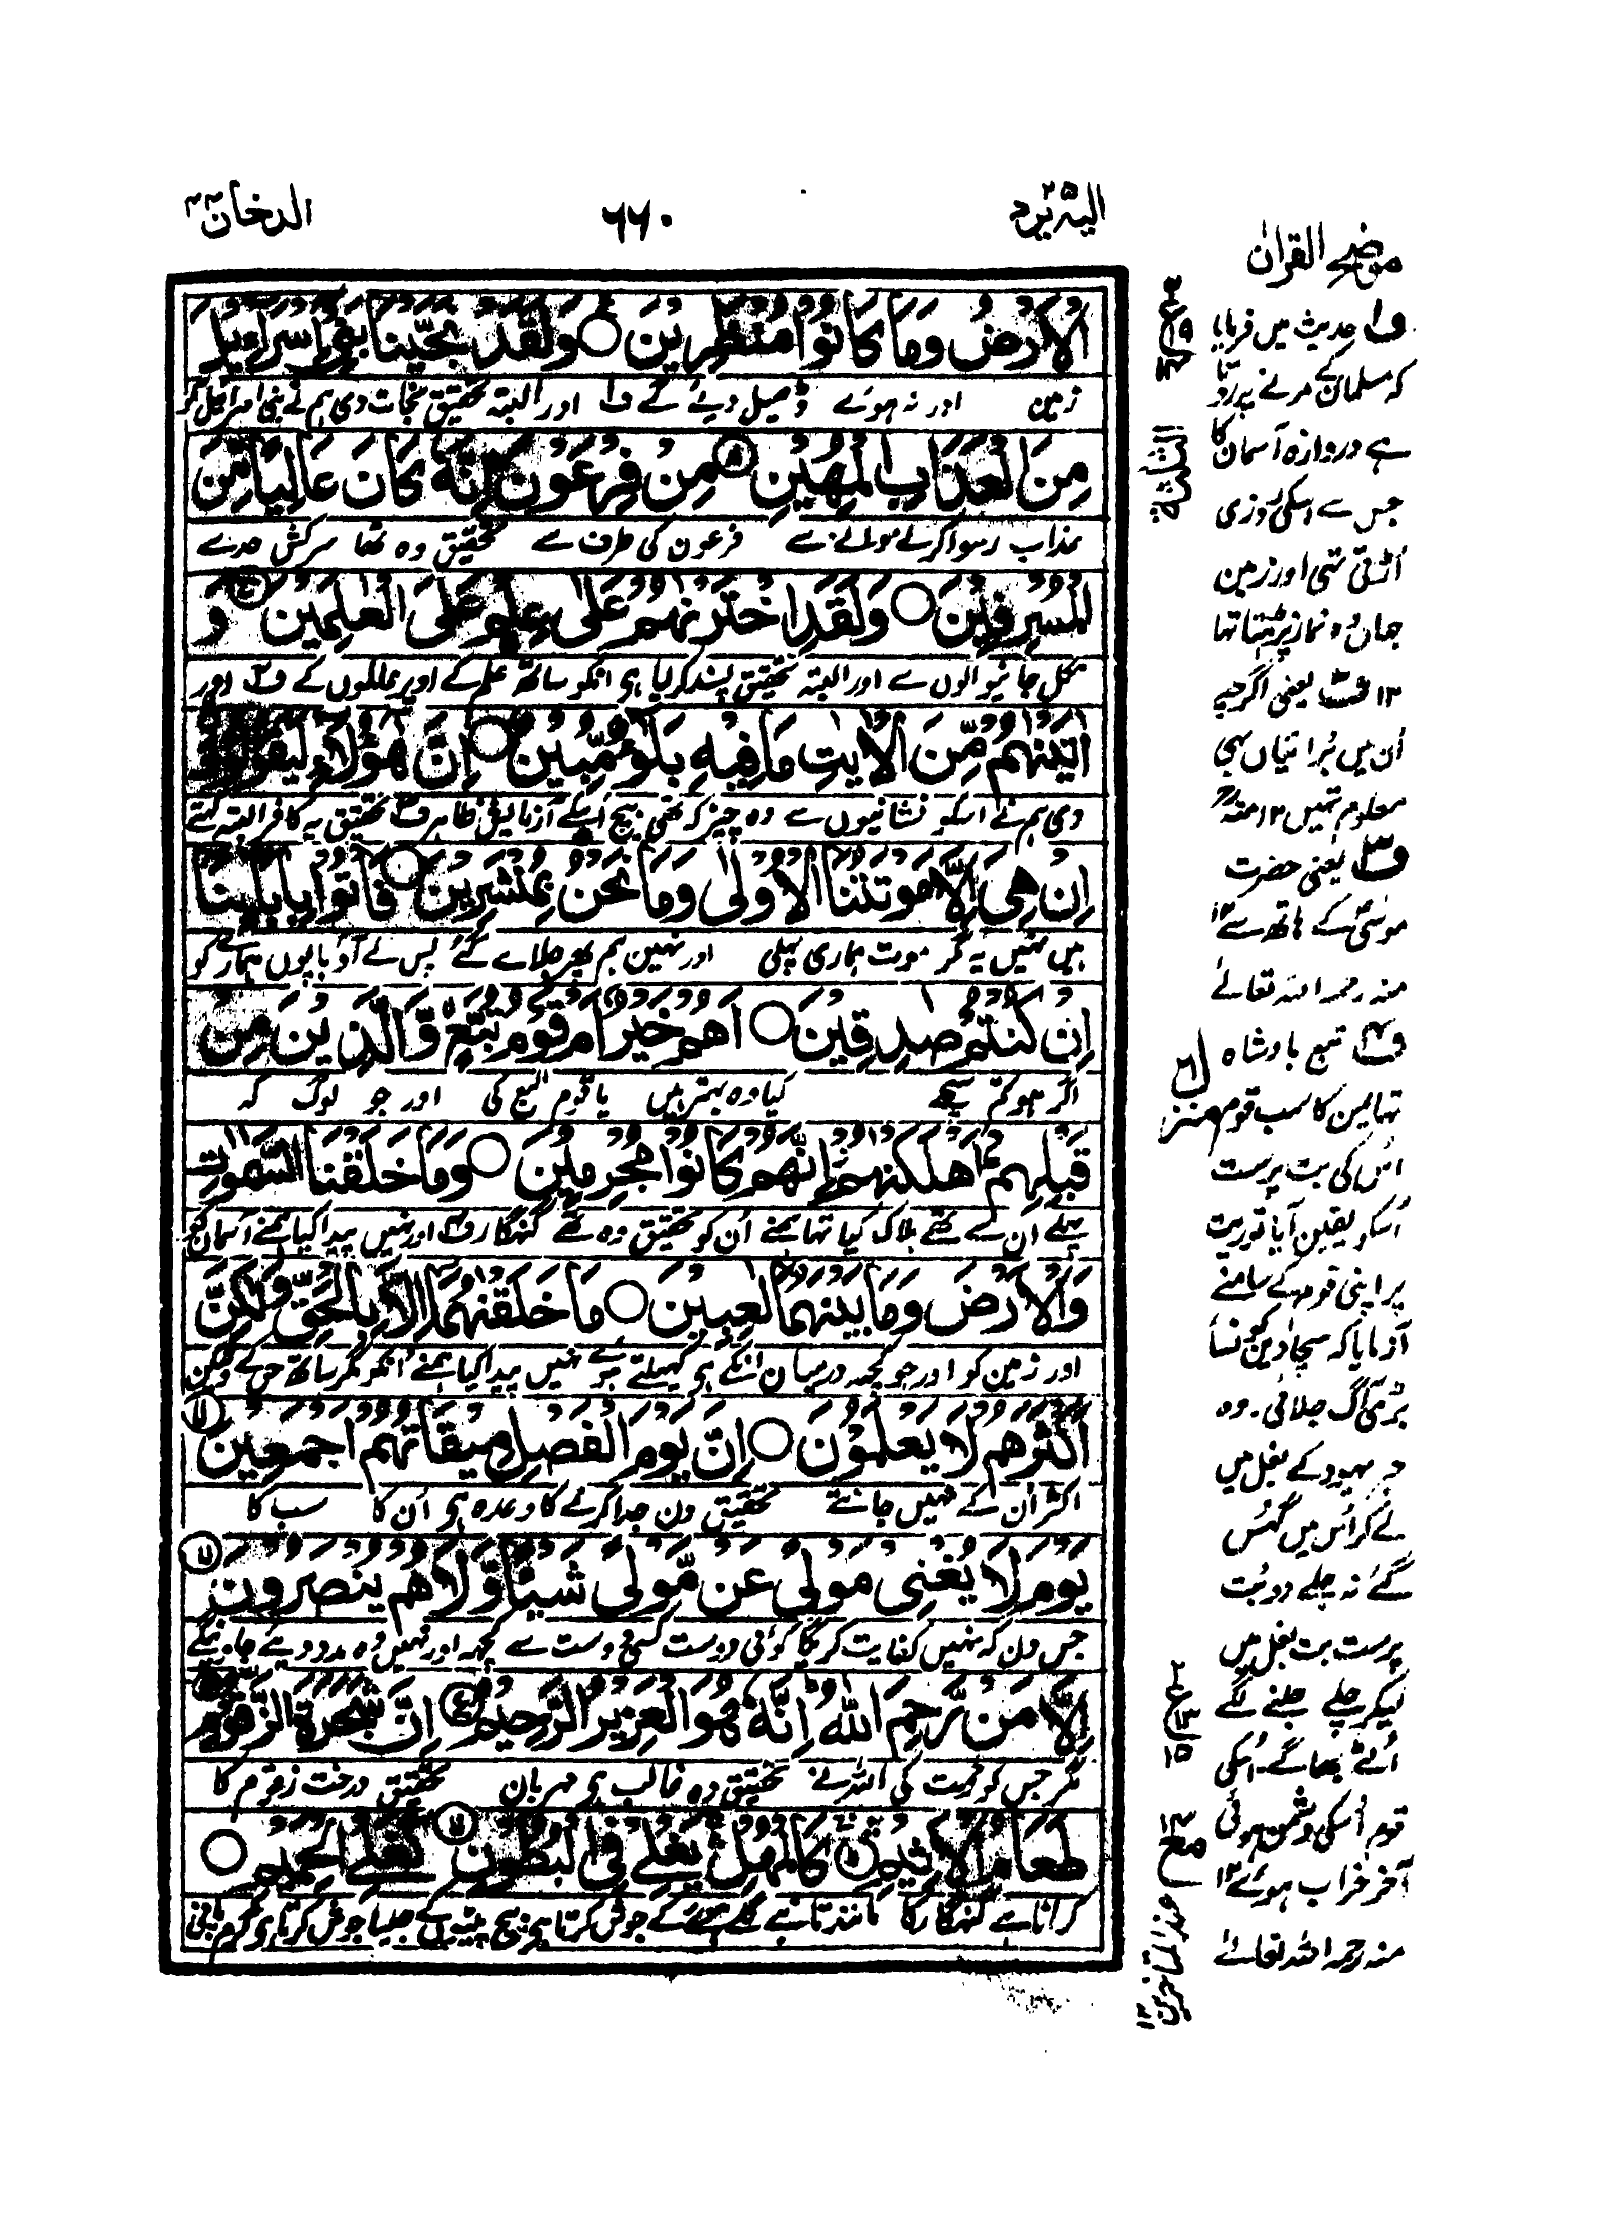 الیہ یرد ٢٥
٦٦٠
الدخان ٤٤
الْاَرْضُ وَمَا كَانُوْا مُنْظَرِيْنَ ○ وَلَقَدْ نَجَّيْنَا بَنِيْ اِسْرَآءِيْلَ
زمین اور نہ ہوئے ڈھیل دیئے گئے ف١ اور البتہ تحقیق نجات دی ہم نے بنی اسرائیل کو
مِنَ الْعَذَابِ الْمُهِيْنِ ○ مِنْ فِرْعَوْنَ اِنَّهٗ كَانَ عَالِيًا مِّنَ
عذاب رسوا کرنے والے سے فرعون کی طرف سے تحقیق وہ تھا سرکش حد سے
الْمُسْرِفِيْنَ ○ وَلَقَدِ اخْتَرْنٰهُمْ عَلٰى عِلْمٍ عَلَى الْعٰلَمِيْنَ ○ وَ
نکل جانیوالوں سے اور البتہ تحقیق پسند کر لیا ہی انکو ساتھ علم کے اوپر عالموں کے ف٢ اور
اٰتَيْنٰهُمْ مِّنَ الْاٰيٰتِ مَا فِيْهِ بَلٰٓؤٌا مُّبِيْنٌ ○ اِنَّ هٰٓؤُلَآءِ لَيَقُوْلُوْنَ
دی ہم نے انکو نشانیوں سے وہ چیز کہ تھی بیچ اسکے آزمایش ظاہر ف٣ تحقیق یہ کافر البتہ کہتے
اِنْ هِيَ اِلَّا مَوْتَتُنَا الْاُوْلٰى وَمَا نَحْنُ بِمُنْشَرِيْنَ ○ فَاْتُوْا بِاٰبَآئِنَا
ہیں نہیں یہ مگر موت ہماری پہلی اور نہین ہم پھر جلائے گئے پس لے آؤ باپوں ہمارے کو
اِنْ كُنْتُمْ صٰدِقِيْنَ ○ اَهُمْ خَيْرٌ اَمْ قَوْمُ تُبَّعٍ وَّالَّذِيْنَ مِنْ
اگر ہو تم سچے کیا وہ بہتر ہیں یا قوم تبع کی اور جو لوگ کہ
قَبْلِهِمْ اَهْلَكْنٰهُمْ اِنَّهُمْ كَانُوْا مُجْرِمِيْنَ ○ وَمَا خَلَقْنَا السَّمٰوٰتِ
پہلے ان سے تھے ہلاک کیا تھا ہمنے ان کو تحقیق وہ تھے گنہگار ف٤ اور نہیں پیدا کیا ہمنے آسمان کو
وَالْاَرْضَ وَمَا بَيْنَهُمَا لٰعِبِيْنَ ○ مَا خَلَقْنٰهُمَا اِلَّا بِالْحَقِّ وَلٰكِنَّ
اور زمین کو اور جو کچھ درمیان انکے ہی کھیلتے ہوئے نہیں پیدا کیا ہمنے انکو مگر ساتھ حق کے ولیکن
اَكْثَرَهُمْ لَا يَعْلَمُوْنَ ○ اِنَّ يَوْمَ الْفَصْلِ مِيْقَاتُهُمْ اَجْمَعِيْنَ
اکثر ان کے نہیں جانتے تحقیق دن جدا کرنے کا وعدہ ہی ان کا سب کا
يَوْمَ لَا يُغْنِيْ مَوْلًى عَنْ مَّوْلًى شَيْئًا وَّلَا هُمْ يُنْصَرُوْنَ
جس دن کہ نہیں کفایت کریگا کوئی دوست کسی دوست سے کچھ اور نہیں وہ مدد دیے جاوینگے
اِلَّا مَنْ رَّحِمَ اللّٰهُ اِنَّهٗ هُوَ الْعَزِيْزُ الرَّحِيْمُ ○ اِنَّ شَجَرَتَ الزَّقُّوْمِ
مگر جس کو رحمت کی اللہ نے تحقیق وہ غالب ہی مہربان تحقیق درخت زقوم کا
طَعَامُ الْاَثِيْمِ ○ كَالْمُهْلِ يَغْلِيْ فِي الْبُطُوْنِ ○ كَغَلْيِ الْحَمِيْمِ ○
کھانا ہے گنہگار کا مانند تانبے گلے ہوئے کے جوش کرتا ہی بیچ پیٹوں کے جیسا جوش کرتا ہی گرم پانی
موضح القران
ف١ حدیث میں فرمایا
کہ مسلمان کے مرنے پر روتا
ہے دروازہ آسمان کا
جس سے اسکی روزی
اترتی تھی اور زمین
جہاں وہ نماز پڑھتا تھا
١٢ ف٢ یعنی اگرچہ
ان میں برائیاں بھی
معلوم تھیں ١٢ منہ
ف٣ یعنی حضرت
موسیٰ کے ہاتھ سے ١٢
منہ رحمہ اللہ تعالےٰ
ف٤ تبع بادشاہ
تھا یمن کا سب قوم
اس کی بت پرست
اسکو یقین آیا توریت
پر اپنی قوم کے سامنے
آزمایا کہ سچا دین کونسا
بڑی آگ جلائی۔ وہ
یہود کے بغل میں
لے کر اس میں گھس
گئے نہ جلے دو بت
پرست بت بغل میں
لیکر چلے جلنے لگے
الٹے بھاگے۔ اسکی
قوم اسکی دشمن ہوئی
آخر خراب ہوئے ١٢
منہ رحمہ اللہ تعالےٰ
عند المتاخرین ١٢